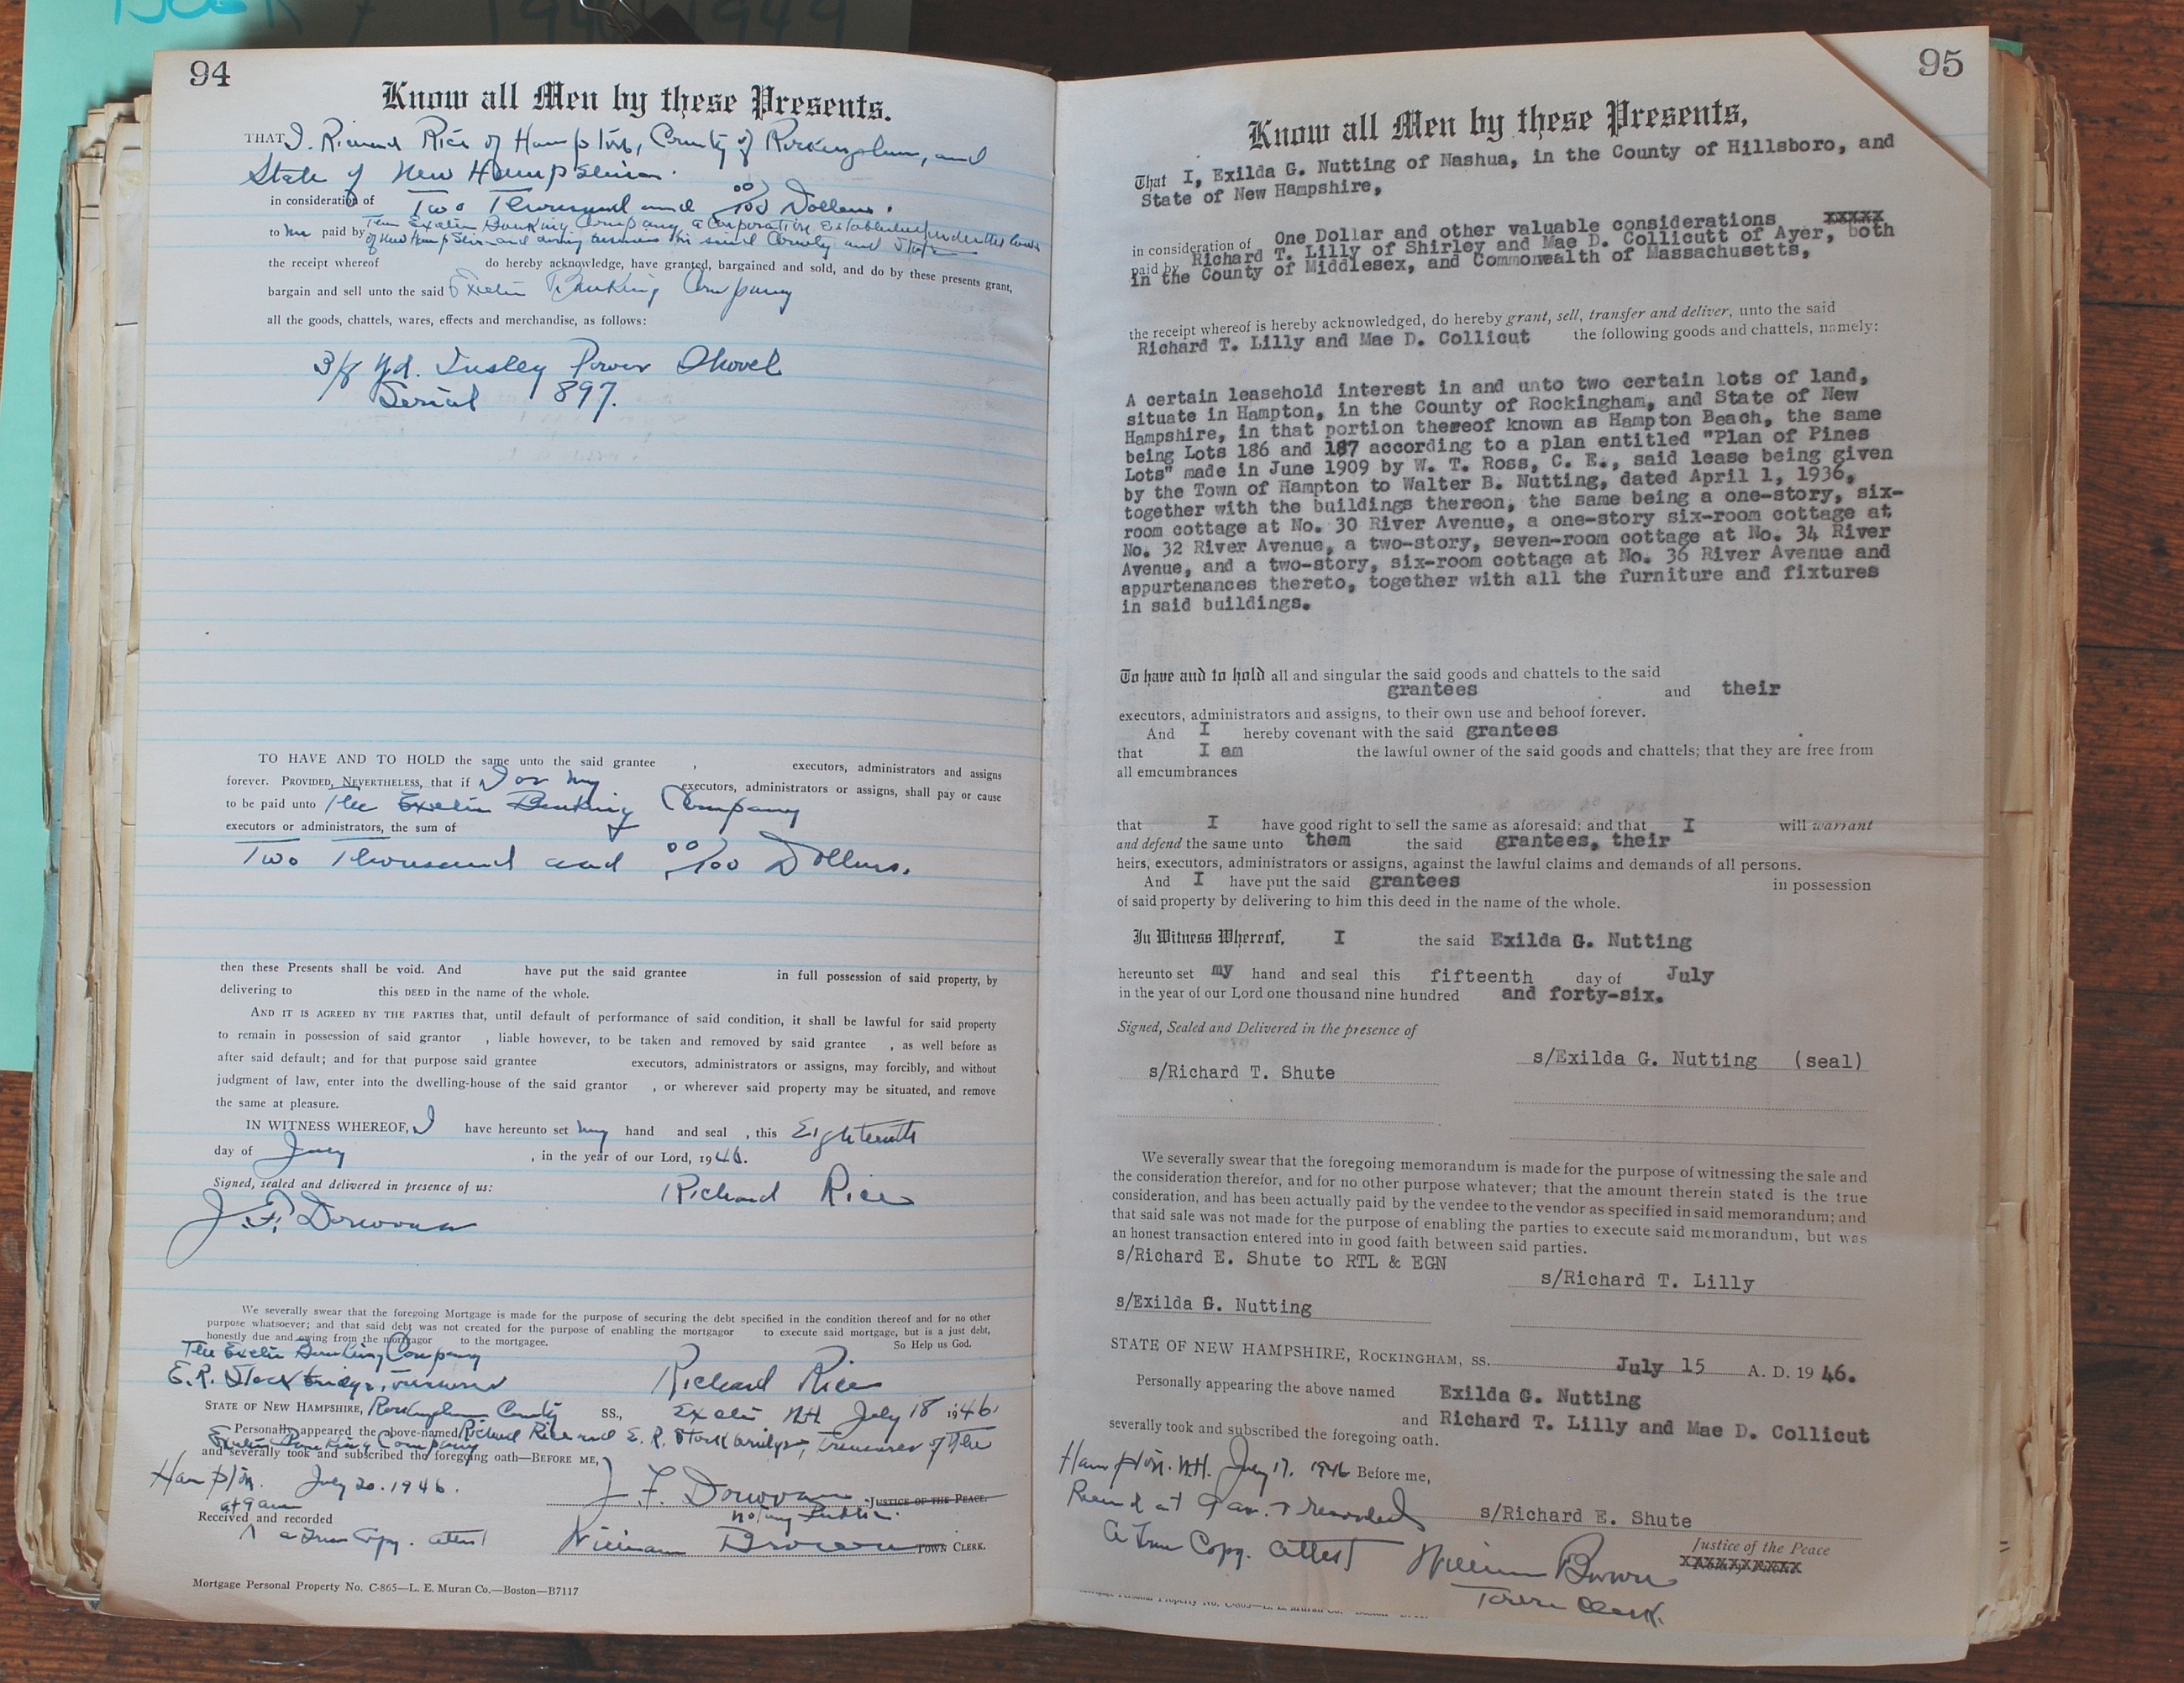 94
Know all Men by these Presents.
THAT I, Richard Rice of Hampton, County of Rockingham, and
State of New Hampshire.
in consideration of Two Thousand and 00/100 Dollars.
to me paid by The Exeter Banking Company, a Corporation established under the laws
of New Hampshire and doing business in said County and State
the receipt whereof do hereby acknowledge, have granted, bargained and sold, and do by these presents grant,
bargain and sell unto the said Exeter Banking Company
all the goods, chattels, wares, effects and merchandise, as follows:
3/8 Yd. Insley Power Shovel
Serial 897.
TO HAVE AND TO HOLD the same unto the said grantee , executors, administrators and assigns
forever. PROVIDED, NEVERTHELESS, that if I or my executors, administrators or assigns, shall pay or cause
to be paid unto The Exeter Banking Company
executors or administrators, the sum of
Two Thousand and 00/100 Dollars.
then these Presents shall be void. And have put the said grantee in full possession of said property, by
delivering to this DEED in the name of the whole.
AND IT IS AGREED BY THE PARTIES that, until default of performance of said condition, it shall be lawful for said property
to remain in possession of said grantor , liable however, to be taken and removed by said grantee , as well before as
after said default; and for that purpose said grantee executors, administrators or assigns, may forcibly, and without
judgment of law, enter into the dwelling-house of the said grantor , or wherever said property may be situated, and remove
the same at pleasure.
IN WITNESS WHEREOF, I have hereunto set my hand and seal , this Eighteenth
day of July , in the year of our Lord, 1946.
Signed, sealed and delivered in presence of us: Richard Rice
J. F. Donovan
We severally swear that the foregoing Mortgage is made for the purpose of securing the debt specified in the condition thereof and for no other
purpose whatsoever; and that said debt was not created for the purpose of enabling the mortgagor to execute said mortgage, but is a just debt,
honestly due and owing from the mortgagor to the mortgagee. So Help us God.
The Exeter Banking Company
E. R. Stockbridge, Treasurer Richard Rice
STATE OF NEW HAMPSHIRE, Rockingham County SS., Exeter N.H. July 18 1946.
Personally appeared the above-named Richard Rice and E. R. Stockbridge, Treasurer of The
Exeter Banking Company
and severally took and subscribed the foregoing oath—BEFORE ME,
Hampton. July 20. 1946. J. F. Donovan JUSTICE OF THE PEACE.
at 9 am Notary Public.
Received and recorded
a True Copy. attest William Brown TOWN CLERK.
Mortgage Personal Property No. C-865—L. E. Muran Co.—Boston—B7117
95
Know all Men by these Presents,
That I, Exilda G. Nutting of Nashua, in the County of Hillsboro, and
State of New Hampshire,
in consideration of One Dollar and other valuable considerations xxxxx
paid by Richard T. Lilly of Shirley and Mae D. Collicutt of Ayer, both
in the County of Middlesex, and Commonwealth of Massachusetts,
the receipt whereof is hereby acknowledged, do hereby grant, sell, transfer and deliver, unto the said
Richard T. Lilly and Mae D. Collicut the following goods and chattels, namely:
A certain leasehold interest in and unto two certain lots of land,
situate in Hampton, in the County of Rockingham, and State of New
Hampshire, in that portion thereof known as Hampton Beach, the same
being Lots 186 and 187 according to a plan entitled "Plan of Pines
Lots" made in June 1909 by W. T. Ross, C. E., said lease being given
by the Town of Hampton to Walter B. Nutting, dated April 1, 1936,
together with the buildings thereon, the same being a one-story, six-
room cottage at No. 30 River Avenue, a one-story six-room cottage at
No. 32 River Avenue, a two-story, seven-room cottage at No. 34 River
Avenue, and a two-story, six-room cottage at No. 36 River Avenue and
appurtenances thereto, together with all the furniture and fixtures
in said buildings.
To have and to hold all and singular the said goods and chattels to the said
grantees and their
executors, administrators and assigns, to their own use and behoof forever.
And I hereby covenant with the said grantees
that I am the lawful owner of the said goods and chattels; that they are free from
all emcumbrances
that I have good right to sell the same as aforesaid: and that I will warrant
and defend the same unto them the said grantees, their
heirs, executors, administrators or assigns, against the lawful claims and demands of all persons.
And I have put the said grantees in possession
of said property by delivering to him this deed in the name of the whole.
In Witness Whereof, I the said Exilda G. Nutting
hereunto set my hand and seal this fifteenth day of July
in the year of our Lord one thousand nine hundred and forty-six.
Signed, Sealed and Delivered in the presence of
s/Richard T. Shute s/Exilda G. Nutting (seal)
We severally swear that the foregoing memorandum is made for the purpose of witnessing the sale and
the consideration therefor, and for no other purpose whatever; that the amount therein stated is the true
consideration, and has been actually paid by the vendee to the vendor as specified in said memorandum; and
that said sale was not made for the purpose of enabling the parties to execute said memorandum, but was
an honest transaction entered into in good faith between said parties.
s/Richard E. Shute to RTL & EGN
s/Richard T. Lilly
s/Exilda G. Nutting
STATE OF NEW HAMPSHIRE, ROCKINGHAM, SS. July 15 A. D. 1946.
Personally appearing the above named Exilda G. Nutting
and Richard T. Lilly and Mae D. Collicut
severally took and subscribed the foregoing oath.
Hampton. N.H. July 17. 1946 Before me,
Received at 9 am. & recorded s/Richard E. Shute
a True Copy. attest William Brown Justice of the Peace
Town Clerk.